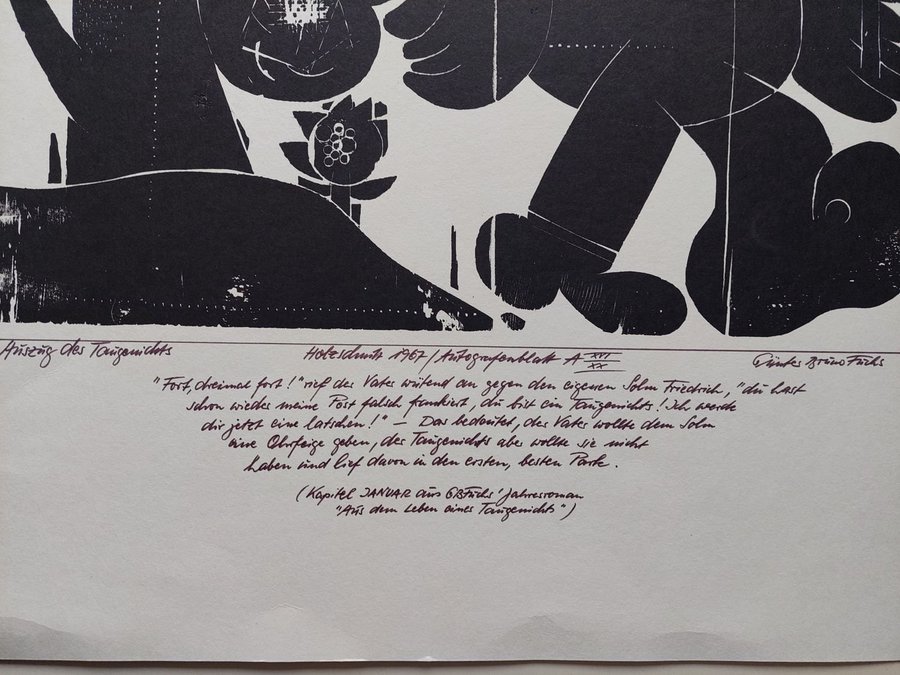 Auszug des Taugenichts
Holzschnitt 1967 / Autografenblatt A XVI/XX
Günter Bruno Fuchs
"Fort, dreimal fort!" rief der Vater wütend an gegen den eigenen Sohn Friedrich, "du hast
schon wieder meine Post falsch frankiert, du bist ein Taugenichts! Ich werde
dir jetzt eine latschen!" – Das bedeutet, der Vater wollte dem Sohn
eine Ohrfeige geben, der Taugenichts aber wollte sie nicht
haben und lief davon in den ersten, besten Park.
(Kapitel JANUAR aus GBFuchs' Jahresroman
"Aus dem Leben eines Taugenichts")